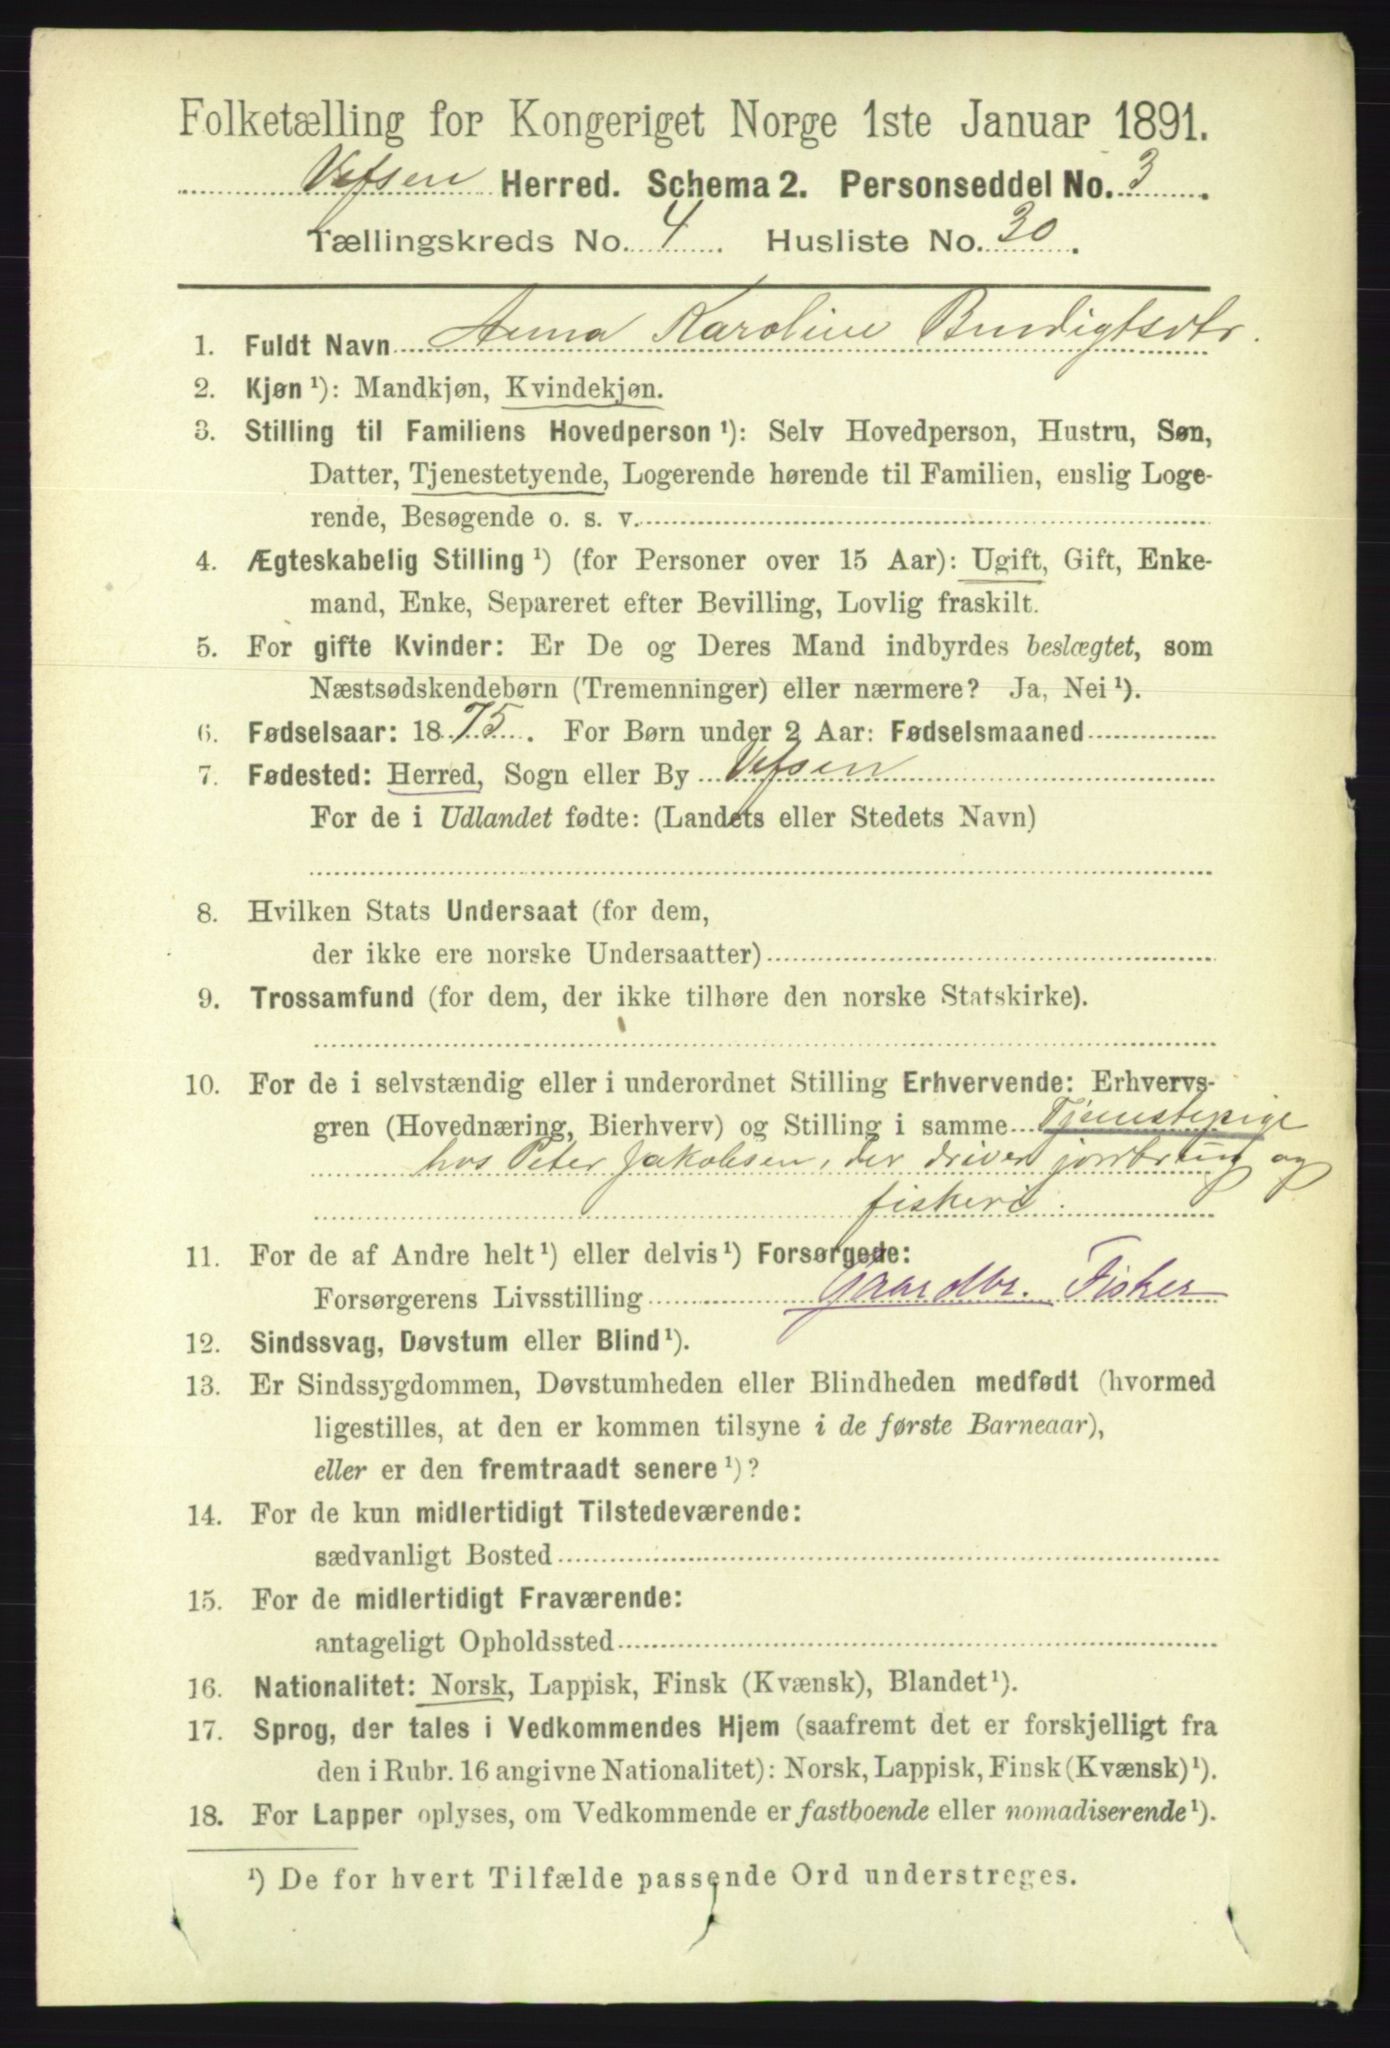 Folketælling for Kongeriget Norge 1ste Januar 1891.
Vefsen Herred. Schema 2. Personseddel No. 3.
Tællingskreds No. 4. Husliste No. 30.
1. Fuldt Navn Anna Karoline Bendigtsdtr.
2. Kjøn ¹): Mandkjøn, Kvindekjøn.
3. Stilling til Familiens Hovedperson ¹): Selv Hovedperson, Hustru, Søn,
Datter, Tjenestetyende, Logerende hørende til Familien, enslig Loge-
rende, Besøgende o. s. v.
4. Ægteskabelig Stilling ¹) (for Personer over 15 Aar): Ugift, Gift, Enke-
mand, Enke, Separeret efter Bevilling, Lovlig fraskilt.
5. For gifte Kvinder: Er De og Deres Mand indbyrdes beslægtet, som
Næstsødskendebørn (Tremenninger) eller nærmere? Ja, Nei ¹).
6. Fødselsaar: 1875. For Børn under 2 Aar: Fødselsmaaned
7. Fødested: Herred, Sogn eller By Vefsen
For de i Udlandet fødte: (Landets eller Stedets Navn)
8. Hvilken Stats Undersaat (for dem,
der ikke ere norske Undersaatter)
9. Trossamfund (for dem, der ikke tilhøre den norske Statskirke).
10. For de i selvstændig eller i underordnet Stilling Erhvervende: Erhvervs-
gren (Hovednæring, Bierhverv) og Stilling i samme Tjenestepige
hos Peter Jakobsen, der driver jordbrug og
fiskeri.
11. For de af Andre helt ¹) eller delvis ¹) Forsørgede:
Forsørgerens Livsstilling Gaardbr. Fisker
12. Sindssvag, Døvstum eller Blind ¹).
13. Er Sindssygdommen, Døvstumheden eller Blindheden medfødt (hvormed
ligestilles, at den er kommen tilsyne i de første Barneaar),
eller er den fremtraadt senere ¹)?
14. For de kun midlertidigt Tilstedeværende:
sædvanligt Bosted
15. For de midlertidigt Fraværende:
antageligt Opholdssted
16. Nationalitet: Norsk, Lappisk, Finsk (Kvænsk), Blandet ¹).
17. Sprog, der tales i Vedkommendes Hjem (saafremt det er forskjelligt fra
den i Rubr. 16 angivne Nationalitet): Norsk, Lappisk, Finsk (Kvænsk) ¹).
18. For Lapper oplyses, om Vedkommende er fastboende eller nomadiserende ¹).
¹) De for hvert Tilfælde passende Ord understreges.